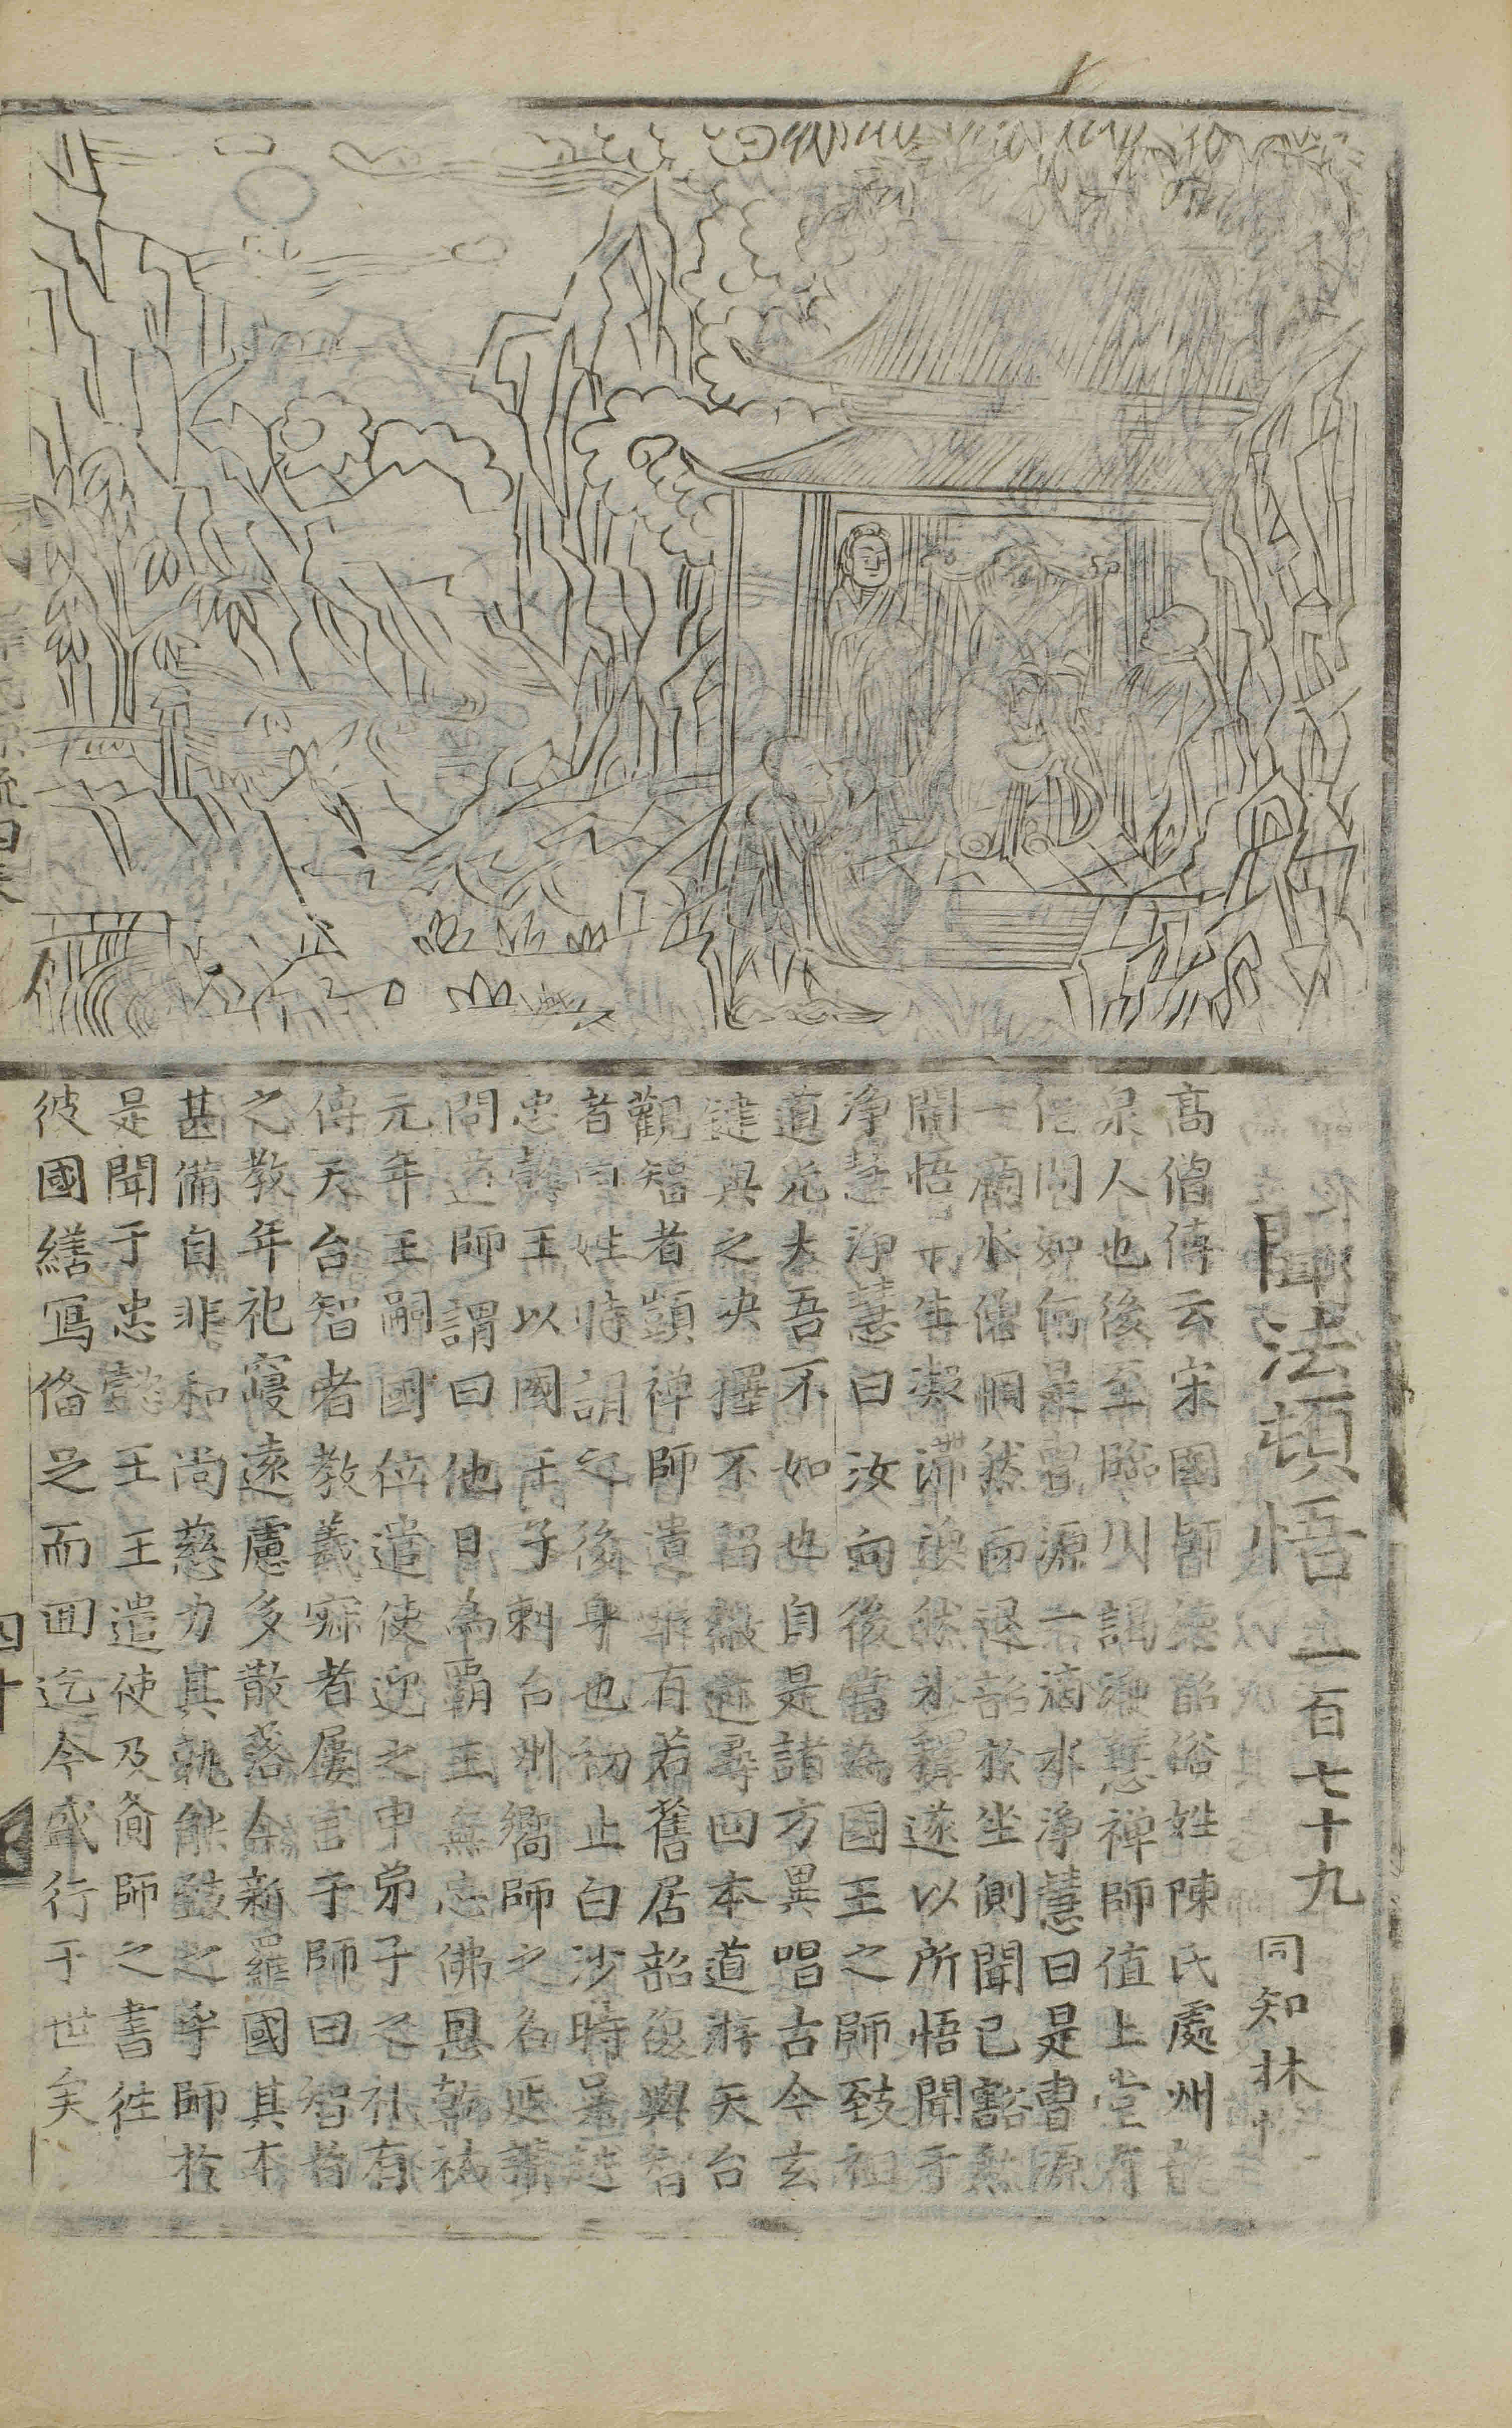 聞法頓悟 一百七十九 同知林
高僧傳云宋國師德韶俗姓陳氏處州龍
泉人也後至臨川謁淨慧禪師值上堂有
僧問如何是曹源一滴水淨慧曰是曹源
一滴水僧惘然而退韶於坐側聞已豁然
開悟平生凝滯渙然冰釋遂以所悟聞于
淨慧淨慧曰汝向後當為國王之師致祖
道光大吾不如也自是諸方異唱古今玄
鍵與之決擇不留微迹尋回本道游天台
觀智者顗禪師遺蹤有若舊居韶復與智
者同姓時謂之後身也初止白沙時吳越
忠懿王以國王子刺台州嚮師之名延請
問道師謂曰他日為覇王無忘佛恩乾祐
元年王嗣國位遣使迎之申弟子之礼有
傳天台智者教義寂者屢言于師曰智者
之教年祀寖遠慮多散落今新羅國其本
甚備自非和尚慈力其孰能致之乎師於
是聞于忠懿王王遣使及賫師之書往
彼國繕寫備足而回迄今盛行于世矣
四十